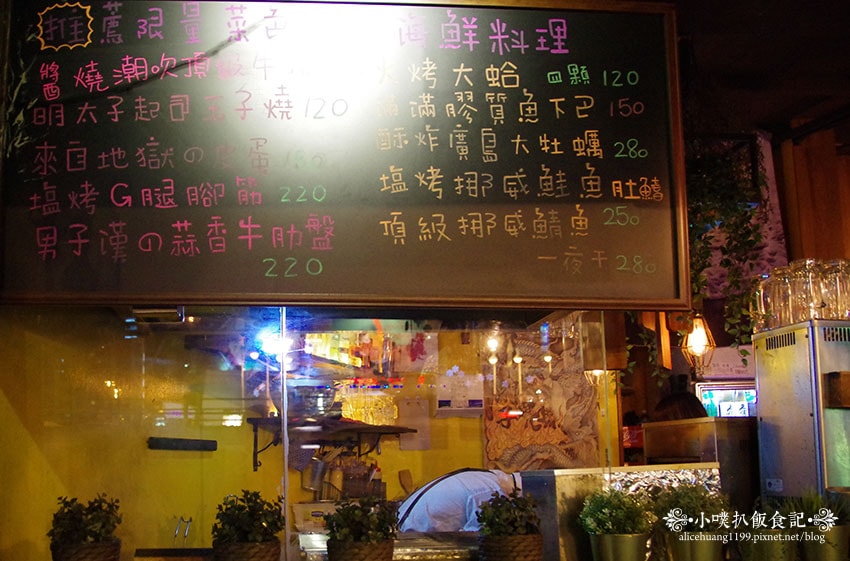 推薦限量菜色
醬燒潮吹頂級牛
明太子起司玉子燒 120
來自地獄の皮蛋 180
塩烤G腿腳筋 220
男子漢の蒜香牛肋盤
220
海鮮料理
火烤大蛤 四顆 120
滿滿膠質魚下巴 150
酥炸廣島大牡蠣 280
塩烤挪威鮭魚肚鰭
250
頂級挪威鯖魚
一夜干 280
小噗扒飯食記
alicehuang1199.pixnet.net/blog